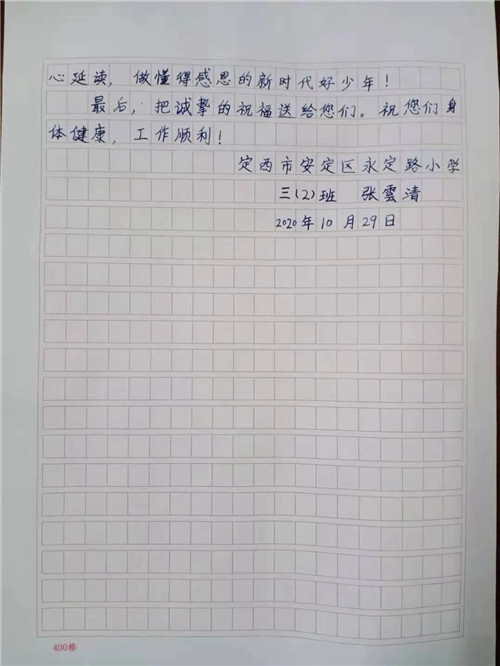 心延读，做懂得感恩的新时代好少年！
最后，把诚挚的祝福送给您们。祝您们身
体健康，工作顺利！
定西市安定区永定路小学
三(2)班 张雲清
2020年10月29日
400格